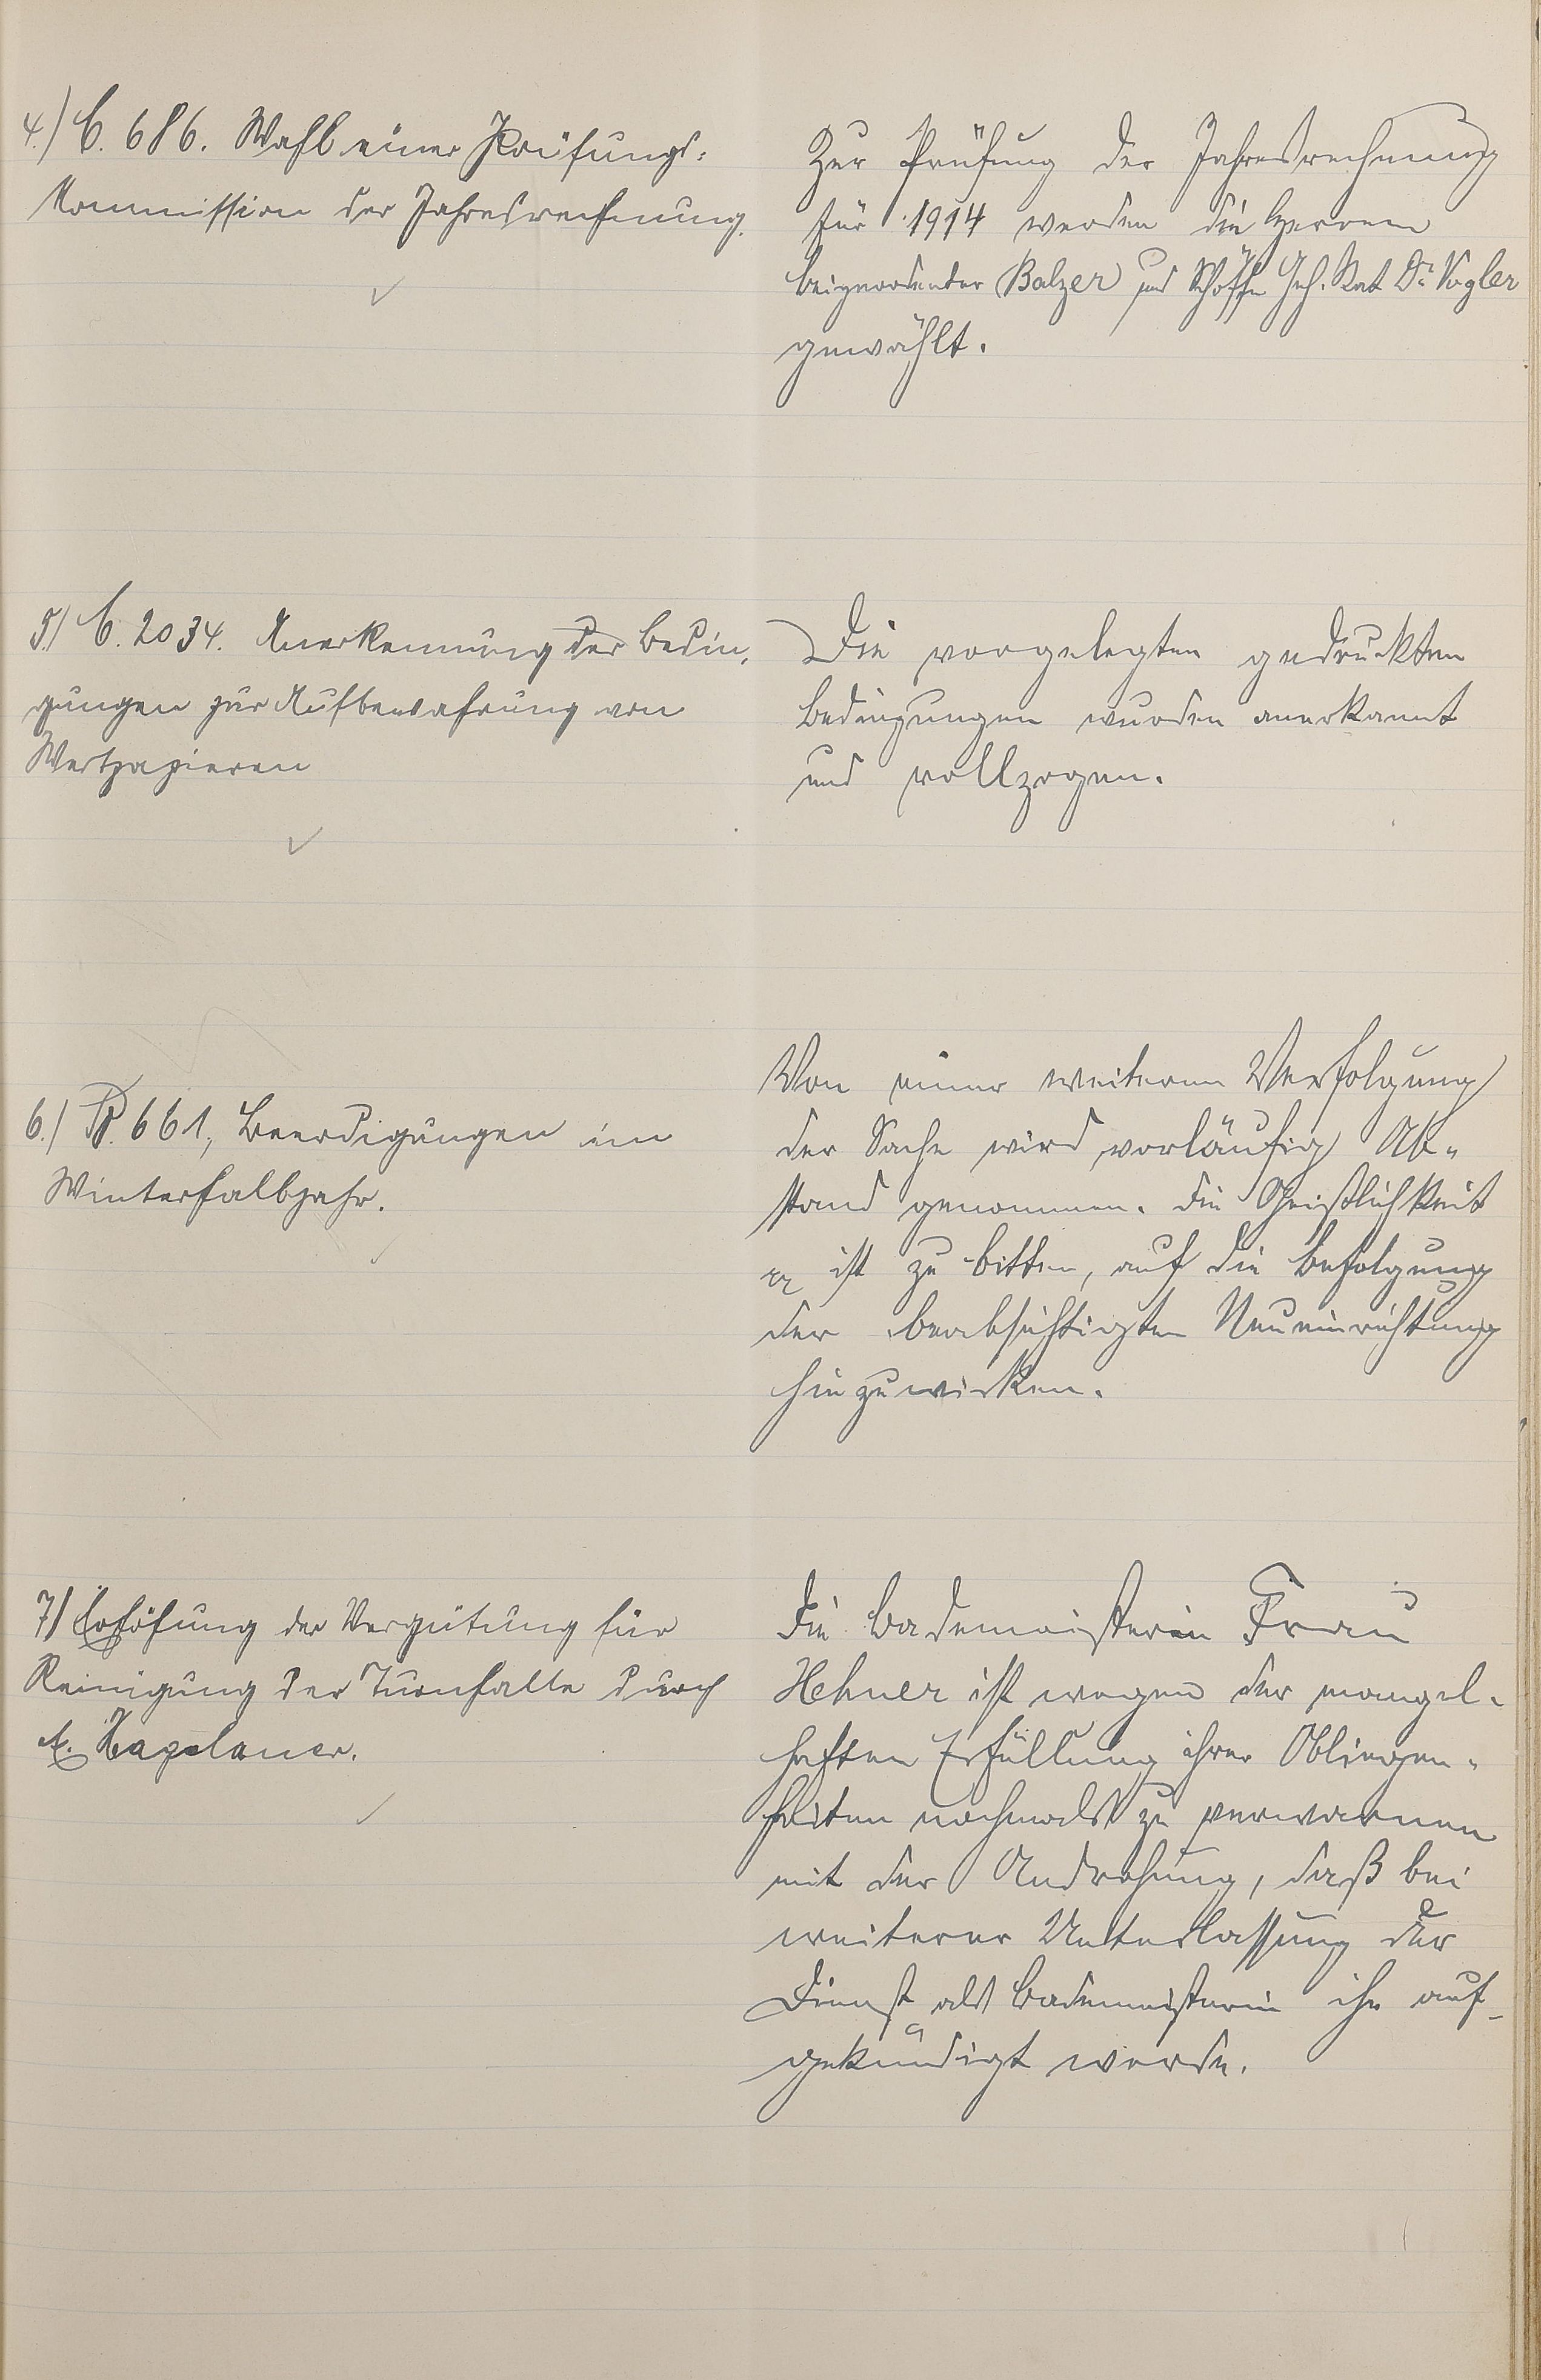 4.) C. 686. Wahl einer Prüfungs:
Kommission der Jahresrechnung.
Zur Prüfung der Jahresrechnung
für 1914 werden die Herren
Beigeordneter Balzer und Schöffe Geh. Rat Dr. Vogler
gewählt.
5.) C. 2034. Anerkennung der Bedin,
gungen zur Aufbewahrung von
Wertpapieren
Die vorgelegten gedruckten
Bedingungen wurden anerkannt
und vollzogen.
6.) P. 661, Beerdigungen im
Winterhalbjahr.
Von einer weiteren Verfolgung
der Sache wird vorläufig Ab-
stand genommen. Die Geistlichkeit
ist zu bitten, auf die Befolgung
der beabsichtigten Neueinrichtung
hinzuwirken.
7) Erhöhung der Vergütung für
Reinigung der Turnhalle durch
A. Hagelauer.
Die Bademeisterin Frau
Hehner ist wegen der mangel-
haften Erfüllung ihrer Obliegen-
heiten nochmals zu verwarnen
mit der Androhung, daß bei
weiterer Unterlassung der
Dienst als Bademeisterin ihr auf-
gekündigt werde.